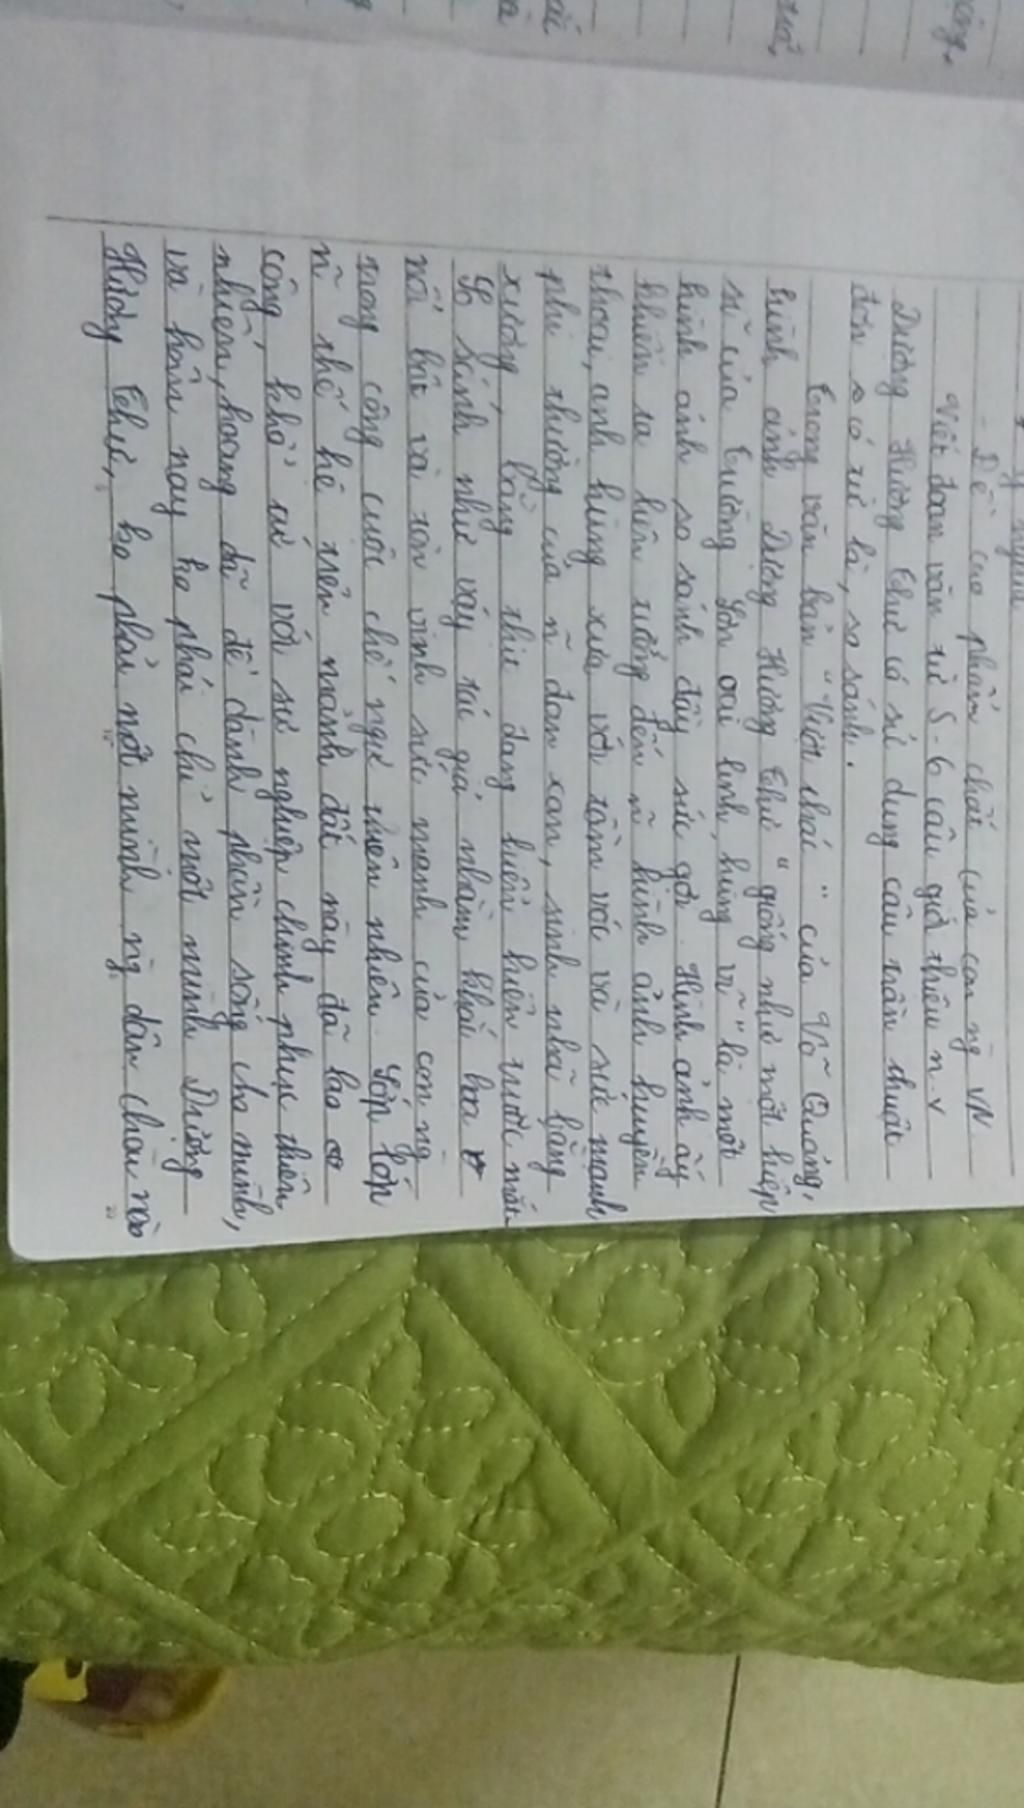 - Đề cao phẩm chất của con ng VN.
Viết đoạn văn từ 5-6 câu giới thiệu n.v
Dượng Hương Thư có sử dụng câu trần thuật
đơn có từ là, so sánh.
Trong văn bản "Vượt thác" của Võ Quảng,
hình ảnh Dượng Hương Thư "giống như một hiệp
sĩ của Trường Sơn oai linh, hùng vĩ" là một
hình ảnh so sánh đầy sức gợi. Hình ảnh ấy
khiến ta liên tưởng đến n~ hình ảnh huyền
thoại, anh hùng xưa với tầm vóc và sức mạnh
phi thường của n~ đam xan, sinh nhã bằng
xương, bằng thịt đang hiển hiện trước mắt.
So sánh như vậy tác giả nhằm khắc hoạ
nổi bật và tôn vinh sức mạnh của con ng
trong công cuộc chế ngự thiên nhiên. Lớp lớp
n~ thế hệ trên mảnh đất này đã lao
công khổ tứ với sự nghiệp chinh phục thiên
nhiên, hoang dã để dành phần sống cho mình,
và hôm nay họ phải chỉ một mình Dượng
Hương Thư, họ phải một mình ng dân chài nào